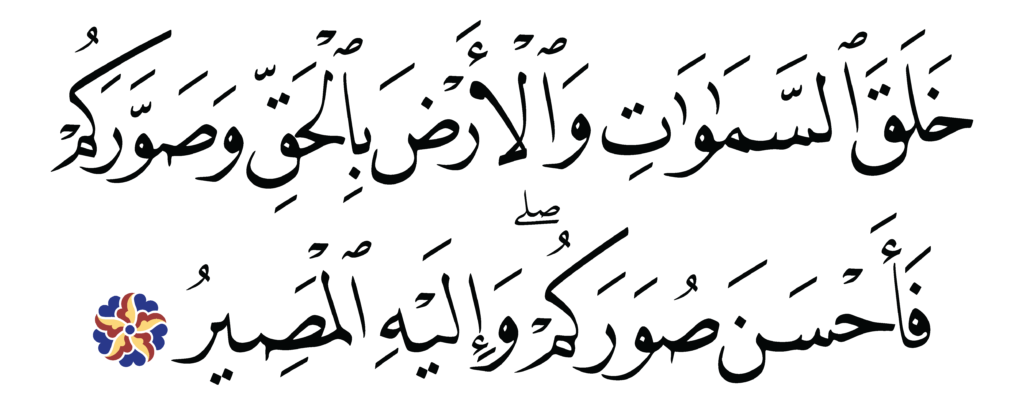 خَلَقَ ٱلسَّمَـٰوَٰتِ وَٱلْأَرْضَ بِٱلْحَقِّ وَصَوَّرَكُمْ
فَأَحْسَنَ صُوَرَكُمْ ۖ وَإِلَيْهِ ٱلْمَصِيرُ